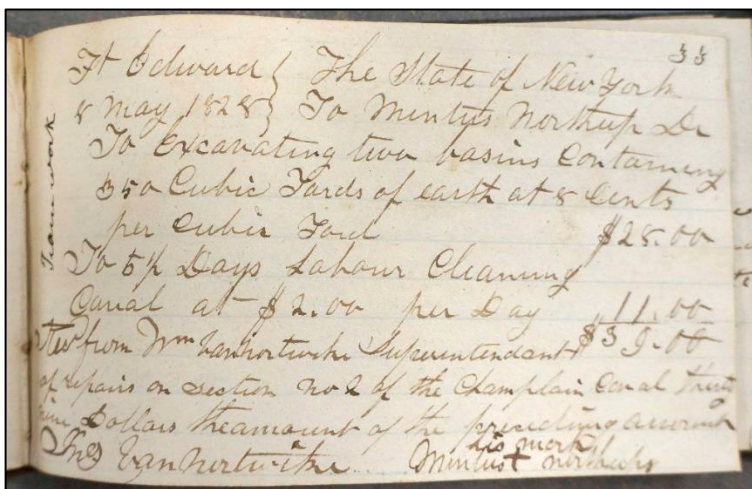 33
Ft Edward } The State of New York
8 may 1828 } To Mintus Northup Dr
To Excavating two basins Containing
350 Cubic Yards of earth at 8 Cents
per Cubic Yard $28.00
To 5½ Days Labour Cleaning
Canal at $2.00 per Day " 11.00
$39.00
Recd from Wm Vanhortwike Superintendant
of repairs on Section no 2 of the Champlain Canal thirty
nine Dollars the amount of the preceding account
his mark
Vanhortwike Mintus + northup
Team work